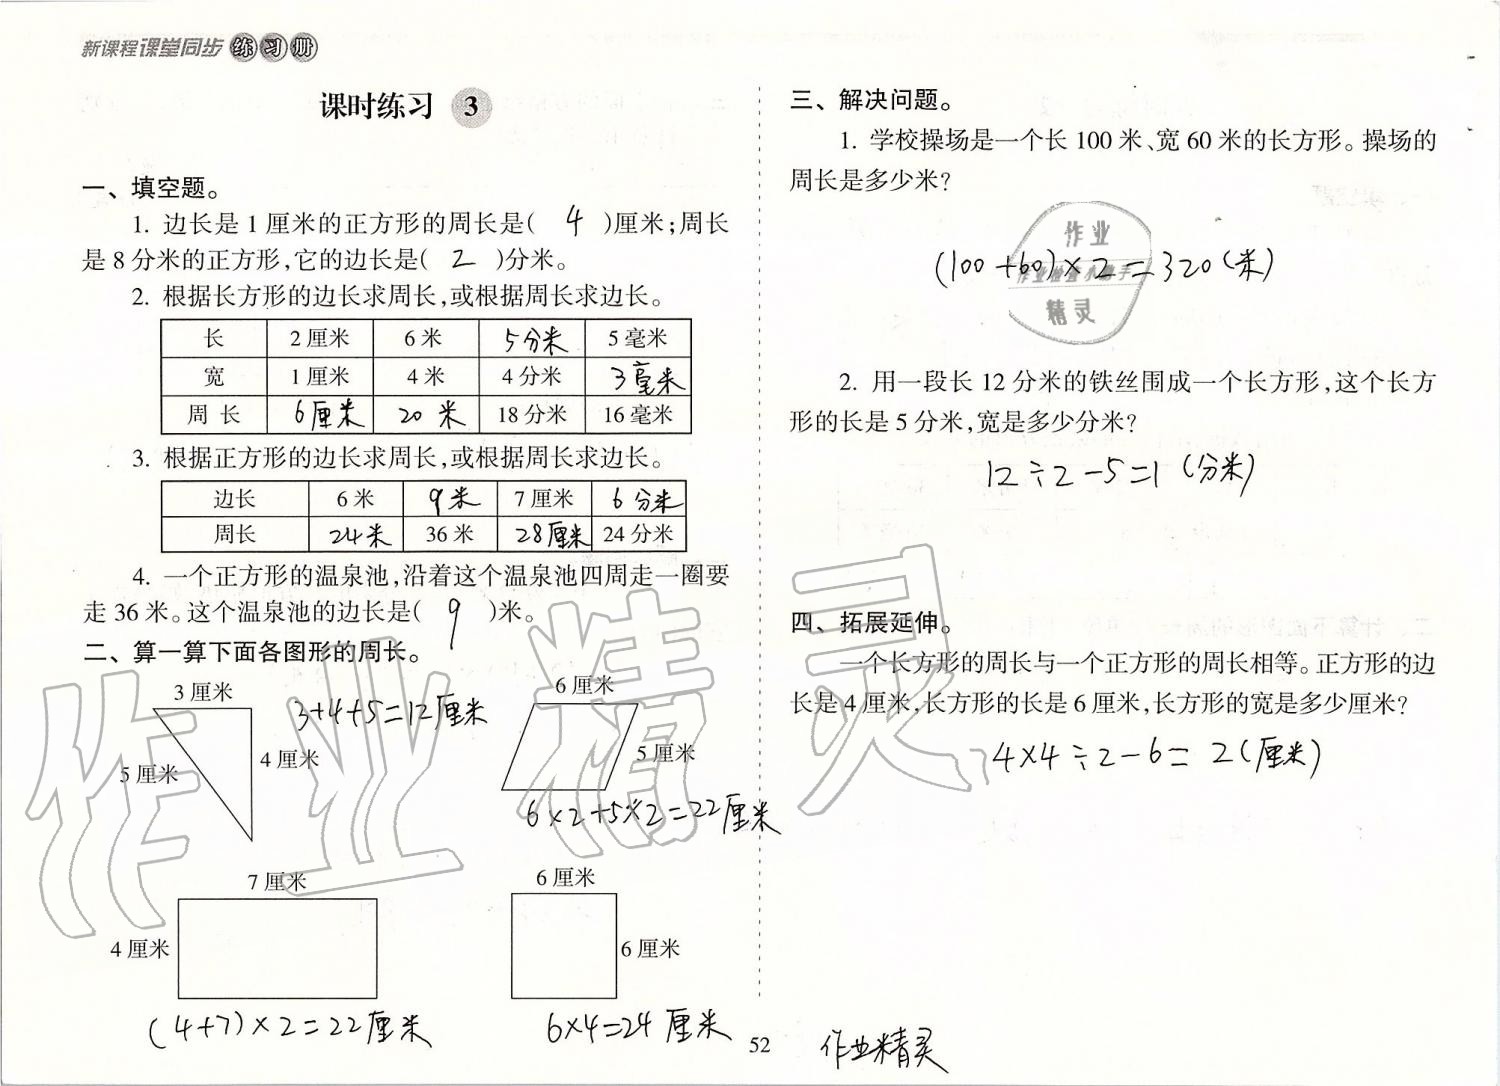 新课程课堂同步练习册
课时练习 3
一、填空题。
1. 边长是1厘米的正方形的周长是( 4 )厘米;周长
是8分米的正方形,它的边长是( 2 )分米。
2. 根据长方形的边长求周长,或根据周长求边长。
长 2厘米 6米 5分米 5毫米
宽 1厘米 4米 4分米 3毫米
周长 6厘米 20米 18分米 16毫米
3. 根据正方形的边长求周长,或根据周长求边长。
边长 6米 9米 7厘米 6分米
周长 24米 36米 28厘米 24分米
4. 一个正方形的温泉池,沿着这个温泉池四周走一圈要
走36米。这个温泉池的边长是( 9 )米。
二、算一算下面各图形的周长。
3厘米
4厘米
5厘米
3+4+5=12厘米
6厘米
5厘米
6×2+5×2=22厘米
7厘米
4厘米
(4+7)×2=22厘米
6厘米
6厘米
6×4=24厘米
52
三、解决问题。
1. 学校操场是一个长100米、宽60米的长方形。操场的
周长是多少米?
(100+60)×2=320(米)
作业
作业检查小助手
精灵
2. 用一段长12分米的铁丝围成一个长方形,这个长方
形的长是5分米,宽是多少分米?
12÷2-5=1(分米)
四、拓展延伸。
一个长方形的周长与一个正方形的周长相等。正方形的边
长是4厘米,长方形的长是6厘米,长方形的宽是多少厘米?
4×4÷2-6=2(厘米)
作业精灵
作业精灵